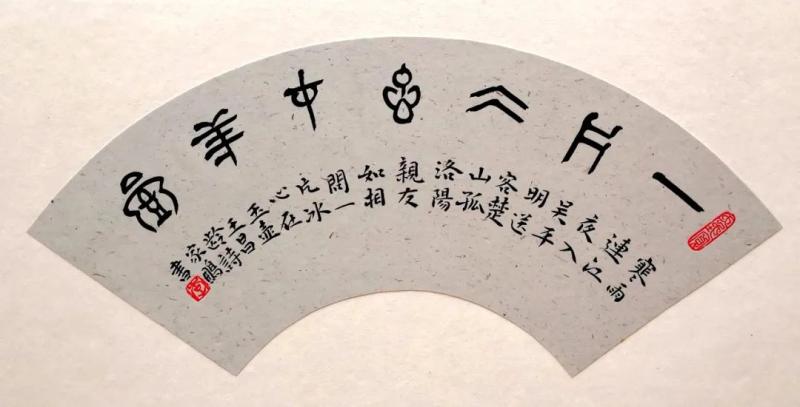 一片仌心在玉壺
寒雨
連江
夜入
吴平
明送
客楚
山孤
洛陽
親友
如相
問一
片冰
心在
玉壺
王昌
齡詩
家鵬
書